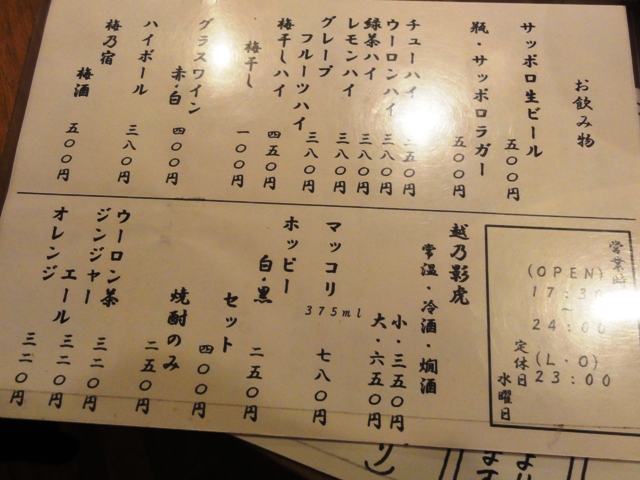 お飲み物
サッポロ生ビール
五〇〇円
瓶・サッポロラガー
五〇〇円
チューハイ
三五〇円
ウーロンハイ
三八〇円
緑茶ハイ
三八〇円
レモンハイ
三八〇円
グレープ
フルーツハイ
三八〇円
梅干しハイ
四五〇円
梅干し
一〇〇円
グラスワイン
赤・白
四〇〇円
ハイボール
三八〇円
梅乃宿
梅酒
五〇〇円
営業時
(OPEN)
17:30
~
24:00
(L・O)
23:00
定休日
水曜日
越乃影虎
常温・冷酒・燗酒
小・三五〇円
大・六五〇円
マッコリ
375ml
七八〇円
ホッピー
白・黒
二五〇円
セット
四〇〇円
焼酎のみ
二五〇円
ウーロン茶
三二〇円
ジンジャー
エール
三二〇円
オレンジ
三二〇円